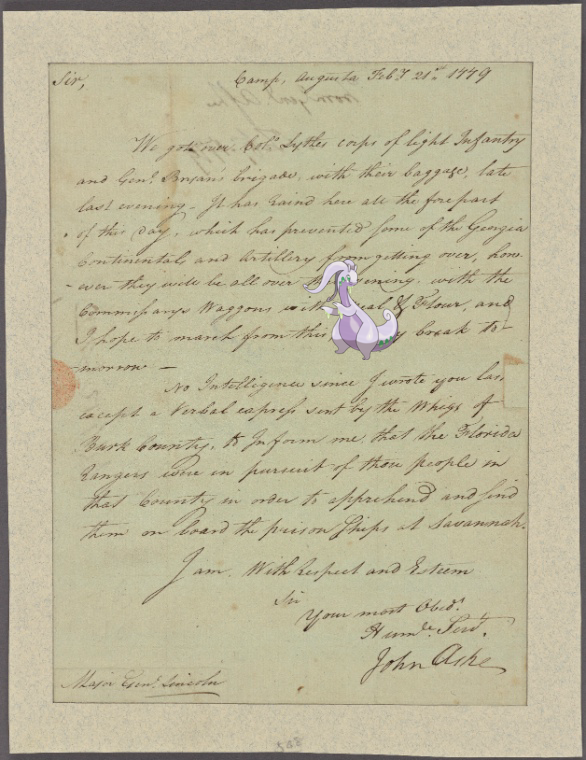 Sir,
Camp, Augusta Feby 21st 1779
We got over Colo Lytles corps of light Infantry
and Genl Bryan's brigade, with their baggage, late
last evening - It has raind here all the forepart
of this day, which has prevented some of the Georgia
Continental, and Artillery from getting over, how-
ever they will be all over evening, with the
Commissarys Waggons with & Flour, and
I hope to march from this break to-
-morrow -
No Intelligence since I wrote you las
except a Verbal express sent by the Whigs of
Burk County, to Inform me that the Florida
Rangers were in pursuit of those people in
that County in order to apprehend and send
them on board the prison Ships at Savannah.
I am, With Respect and Esteem
Sir
Your most Obedt
Humle Servt.
John Ashe
Major Genl Lincoln